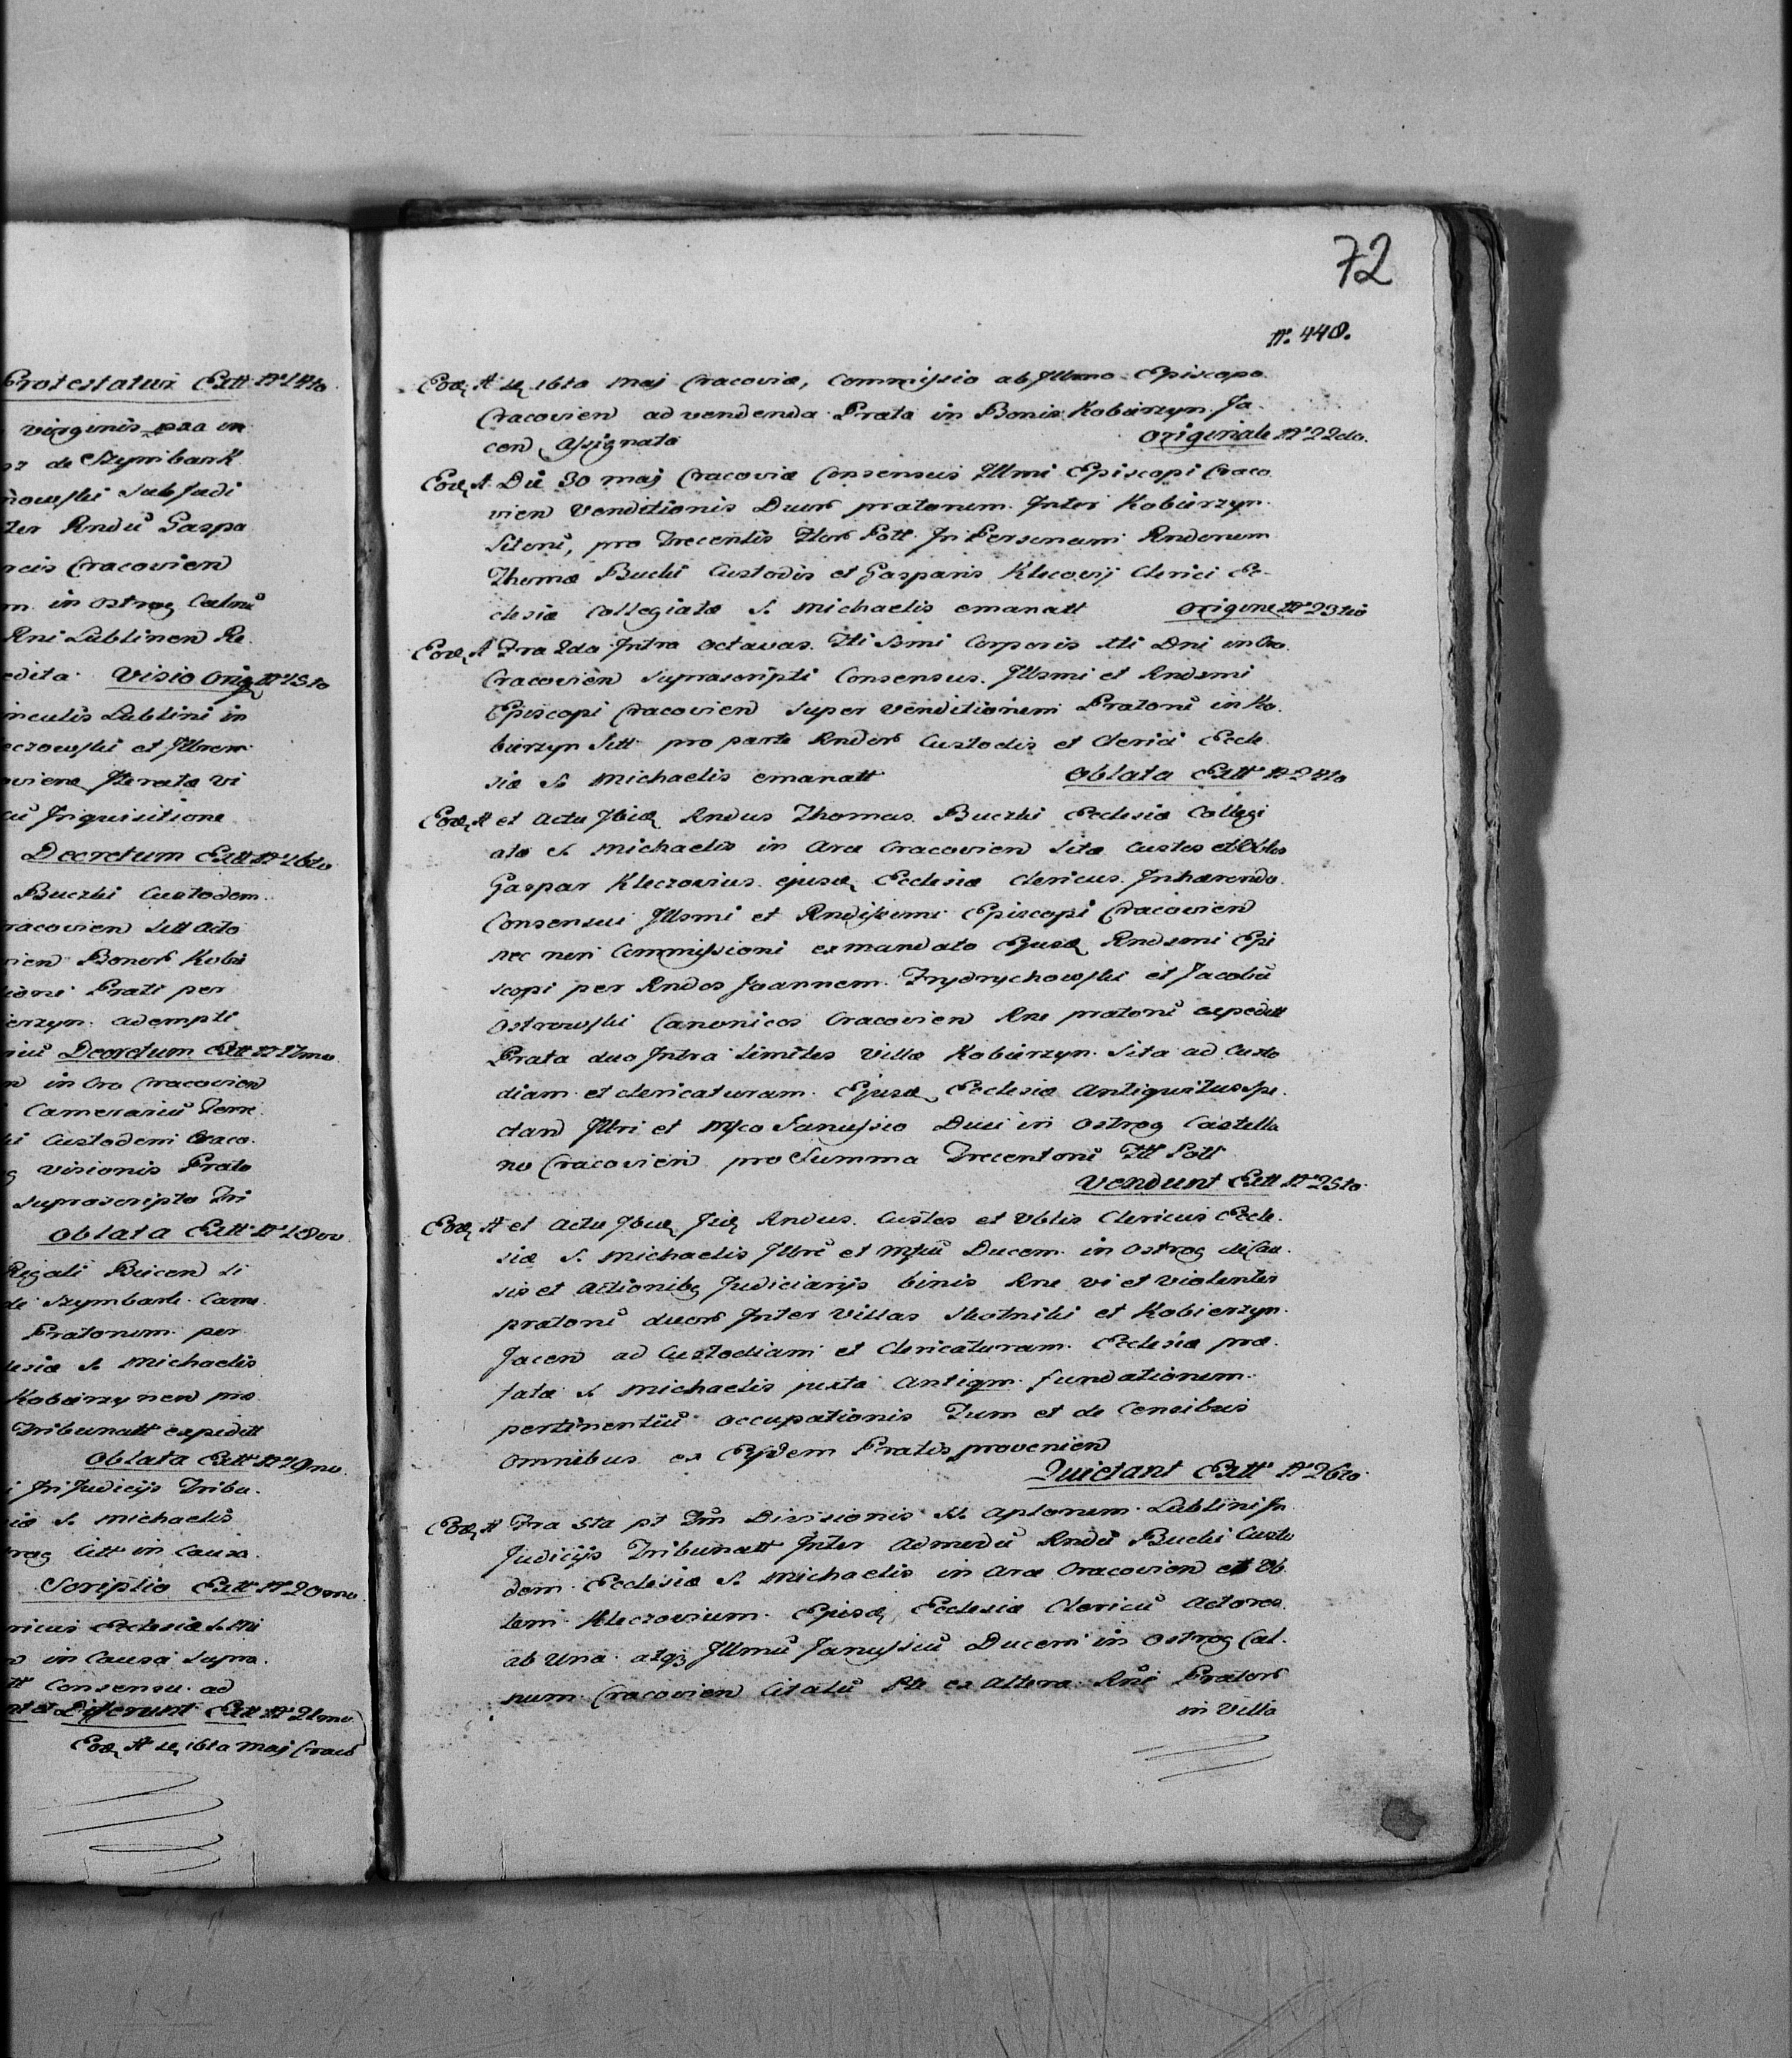 Protestatur Extt N° 14to
virginis paa in
de Szymbark
nowski Subjudi
ter Rndū Gaspa
Cracovien
in Ostrog Calnū
Rni Lublinen Re
edita. Visio Orig N° 15to
inculis Lublini in
eczowski et Jllrem
Jterata vi
cū Jnquisitione
Decretum Extt N° 16to
Buczki Custodem
racovien Sett Acto
rien Bonorᵇ Kobi
ioni Prati per
ierzyn. adempti
Decretum Extt N° 17mo
n in Cro Cracovien
Camerariū Terre
ki Custodem Craco.
visionis Prato
Suprascripto Tri
Oblata Extt N° 18vo
Regali Biecen Li
de Szymbark. Came
Pratorum per
lesiæ S. Michaelis
Kobierzynen pro
Tribunatt expeditt
Oblata Extt N° 19no
Jn Judicijs Tribu.
iæ S. Michaelis
rog Citt in Causa.
Scriptio Extt N° 20mo
ricus Ecclesiæ S. Mi
in Causa Supra.
tt Consensu. ad
Differunt Extt N° 21mo
Eodᶒ A° dᶒ 16ta Maj Craco
72
N. 448.
Eodᶒ A° dᶒ 16ta Maj Cracoviæ, Commissio ab Jllsmo Episcopo
Cracovien ad vendenda Prata in Bonis Kobierzyn Ja
cen, Assignata Originale N° 22do.
Eodᶒ A° Die 30 Maj Cracoviæ Consensus Jllmi Episcopi Craco
vien Venditionis Duorᵇ pratorum Jnter Kobierzyn
Sitorū, pro Trecentis Florᵇ Poll Jn Personam Rndorum
Thomæ Bucki Custodis et Gasparis Klecovij Clerici Ec-
clesiæ Collegiatæ S. Michaelis emanatt Origine N° 23tio
Eodᶒ A° Fra 2da Jntra Octavas Fti Ssmi Corporis Xti Dni in Cro.
Cracovien Suprascripti Consensus. Jllsmi et Rndsmi
Episcopi Cracovien Super Venditionem Pratorū in Ko.
bierzyn Sitt pro parte Rndorᵇ Custodis et Clerici Eccle.
siæ S. Michaelis emanatt Oblata Extt N° 24to
Eodᶒ A° et Actu Jbidᶒ Rndus Thomas Buczki Ecclesiæ Collegi
atæ S. Michaelis in Arce Cracovien Sitæ Custos et Vblis
Gaspar Kleczovius ejusdᶒ Ecclesiæ Clericus. Jnhærendo.
Consensui Jllsmi et Rndissimi Episcopi Cracovien
nec non Commissioni ex mandato Ejusdᶒ Rndsmi Epi
scopi per Rndos Joannem Frydrychowski et Jacobū
Ostrowski Canonicos Cracovien Rne pratorū expeditt
Prata duo Jntra Limites Villæ Kobierzyn. Sita ad Custo
diam et clericaturam Ejusdᶒ Ecclesiæ Antiquitus Spe.
ctan Jllri et Mfco Janussio Duci in Ostrog Castella
no Cracovien pro Summa Trecentorū Fll Poll
Vendunt Extt N° 25to
Eodᶒ A° et Actu Jbidᶒ Jidᶒ Rndus. Custos et Vblis Clericus Eccle.
siæ S. Michaelis Jllrē et Mfcū Ducem in Ostrog de Cau.
sis et Actionibꝫ Judiciarijs binis Rne vi et violenter
pratorū duorᵇ Jnter Villas Skotniki et Kobierzyn.
Jacen ad Custodiam et Clericaturam Ecclesiæ præ.
fatæ S. Michaelis juxta Antiqm. fundationem.
pertinentiū occupationis Tum et de Censibus
Omnibus ex Eisdem Pratis provenien
Quietant Extt N° 26to
Eodᶒ A° Fra 5ta pt Fm Divisionis SS. Aplorum Lublini Jn
Judicijs Tribunatt Jnter Admrdū Rndū Bucki Custo
dem Ecclesiæ S. Michaelis in Arce Cracovien et Vb
lem Kleczovium Ejusdᶒ Ecclesiæ Clericū Actores.
ab una atqꝫ Jllmū Janussiū Ducem in Ostrog Cal.
num Cracovien Citatū Pte ex altera Rnē Pratorᵇ
in Villa